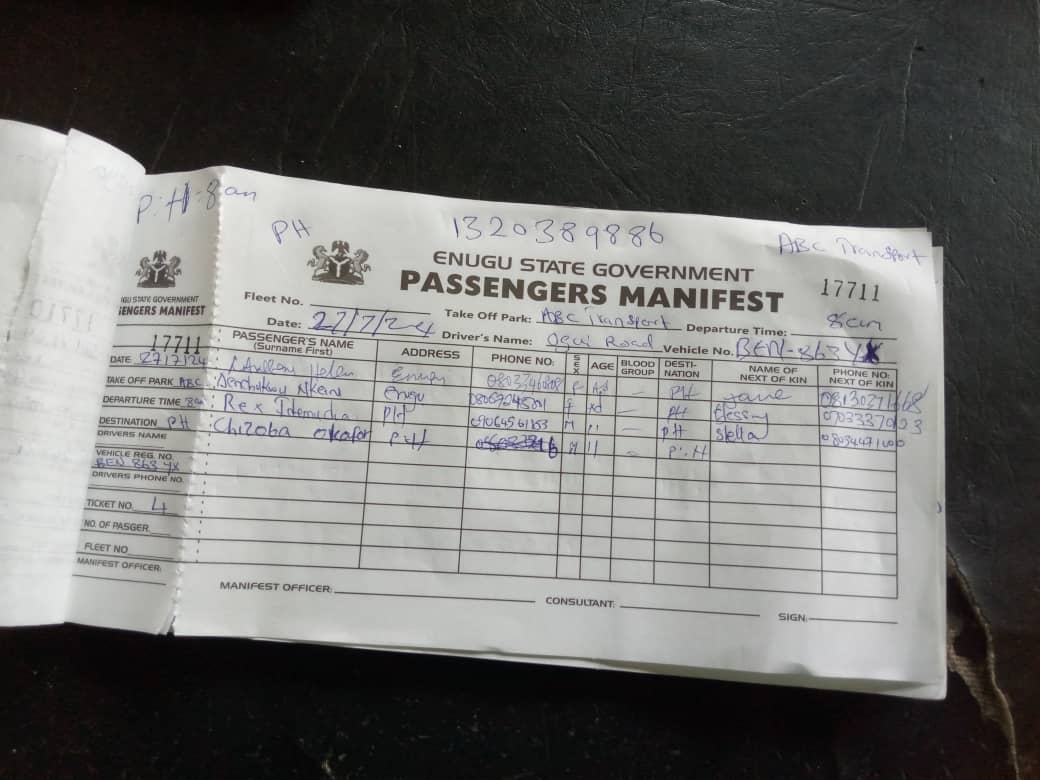 P.H:8am
PH
1320389886
ABC Transport
ENUGU STATE GOVERNMENT
PASSENGERS MANIFEST
17711
Fleet No.
Take Off Park: ABC Transport
Departure Time: 8am
Date: 27/7/24
Driver's Name: Ogui Road
Vehicle No. BEN-863YX
PASSENGER'S NAME (Surname First) ADDRESS PHONE NO: SEX AGE BLOOD GROUP DESTI-NATION NAME OF NEXT OF KIN PHONE NO: NEXT OF KIN
Helen f Ad — PH Jane
Enugu f Ad — PH Blessing
Rex PH 09064561153 M 11 — PH Stella
Chizoba Okafor P:H M 11 — P:H
MANIFEST OFFICER:
CONSULTANT:
SIGN:
GU STATE GOVERNMENT
SENGERS MANIFEST
17711
DATE 27/7/24
TAKE OFF PARK ABC
DEPARTURE TIME 8am
DESTINATION PH
DRIVERS NAME
VEHICLE REG. NO.
BEN 863 YX
DRIVERS PHONE NO.
TICKET NO. 4
NO. OF PASGER.
FLEET NO
MANIFEST OFFICER: